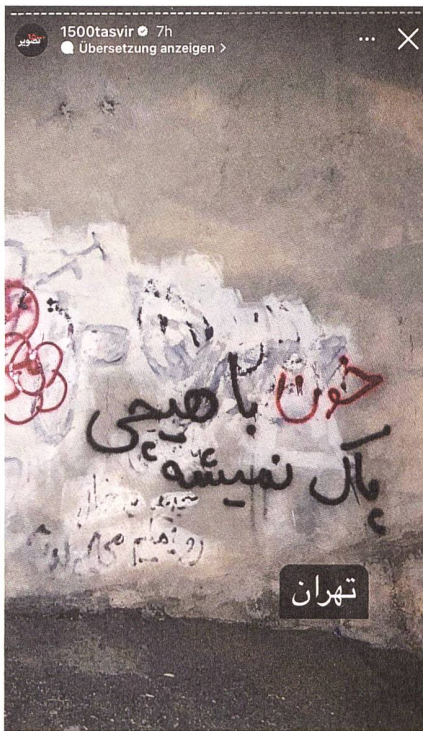 1500tasvir 7h
Übersetzung anzeigen >
خون با هیچی
پاک نمیشه
تهران